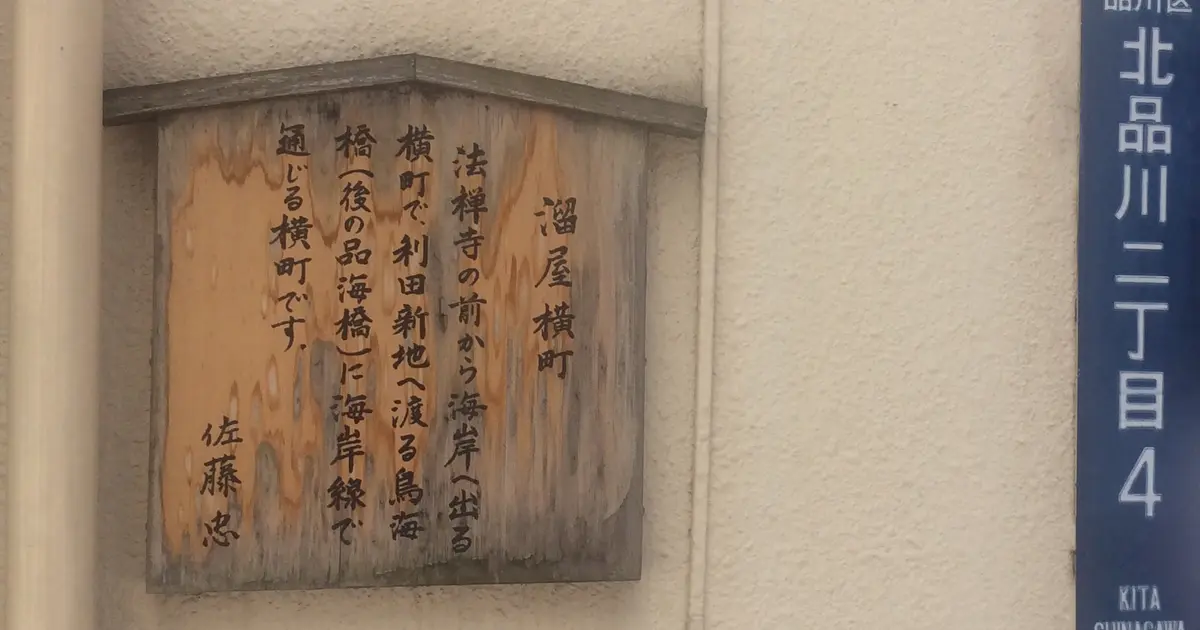 溜屋横町
法禅寺の前から海岸へ出る
横町で、利田新地へ渡る鳥海
橋(後の品海橋)に海岸線で
通じる横町です。
佐藤忠
品川区
北品川二丁目4
KITA
SHINAGAWA